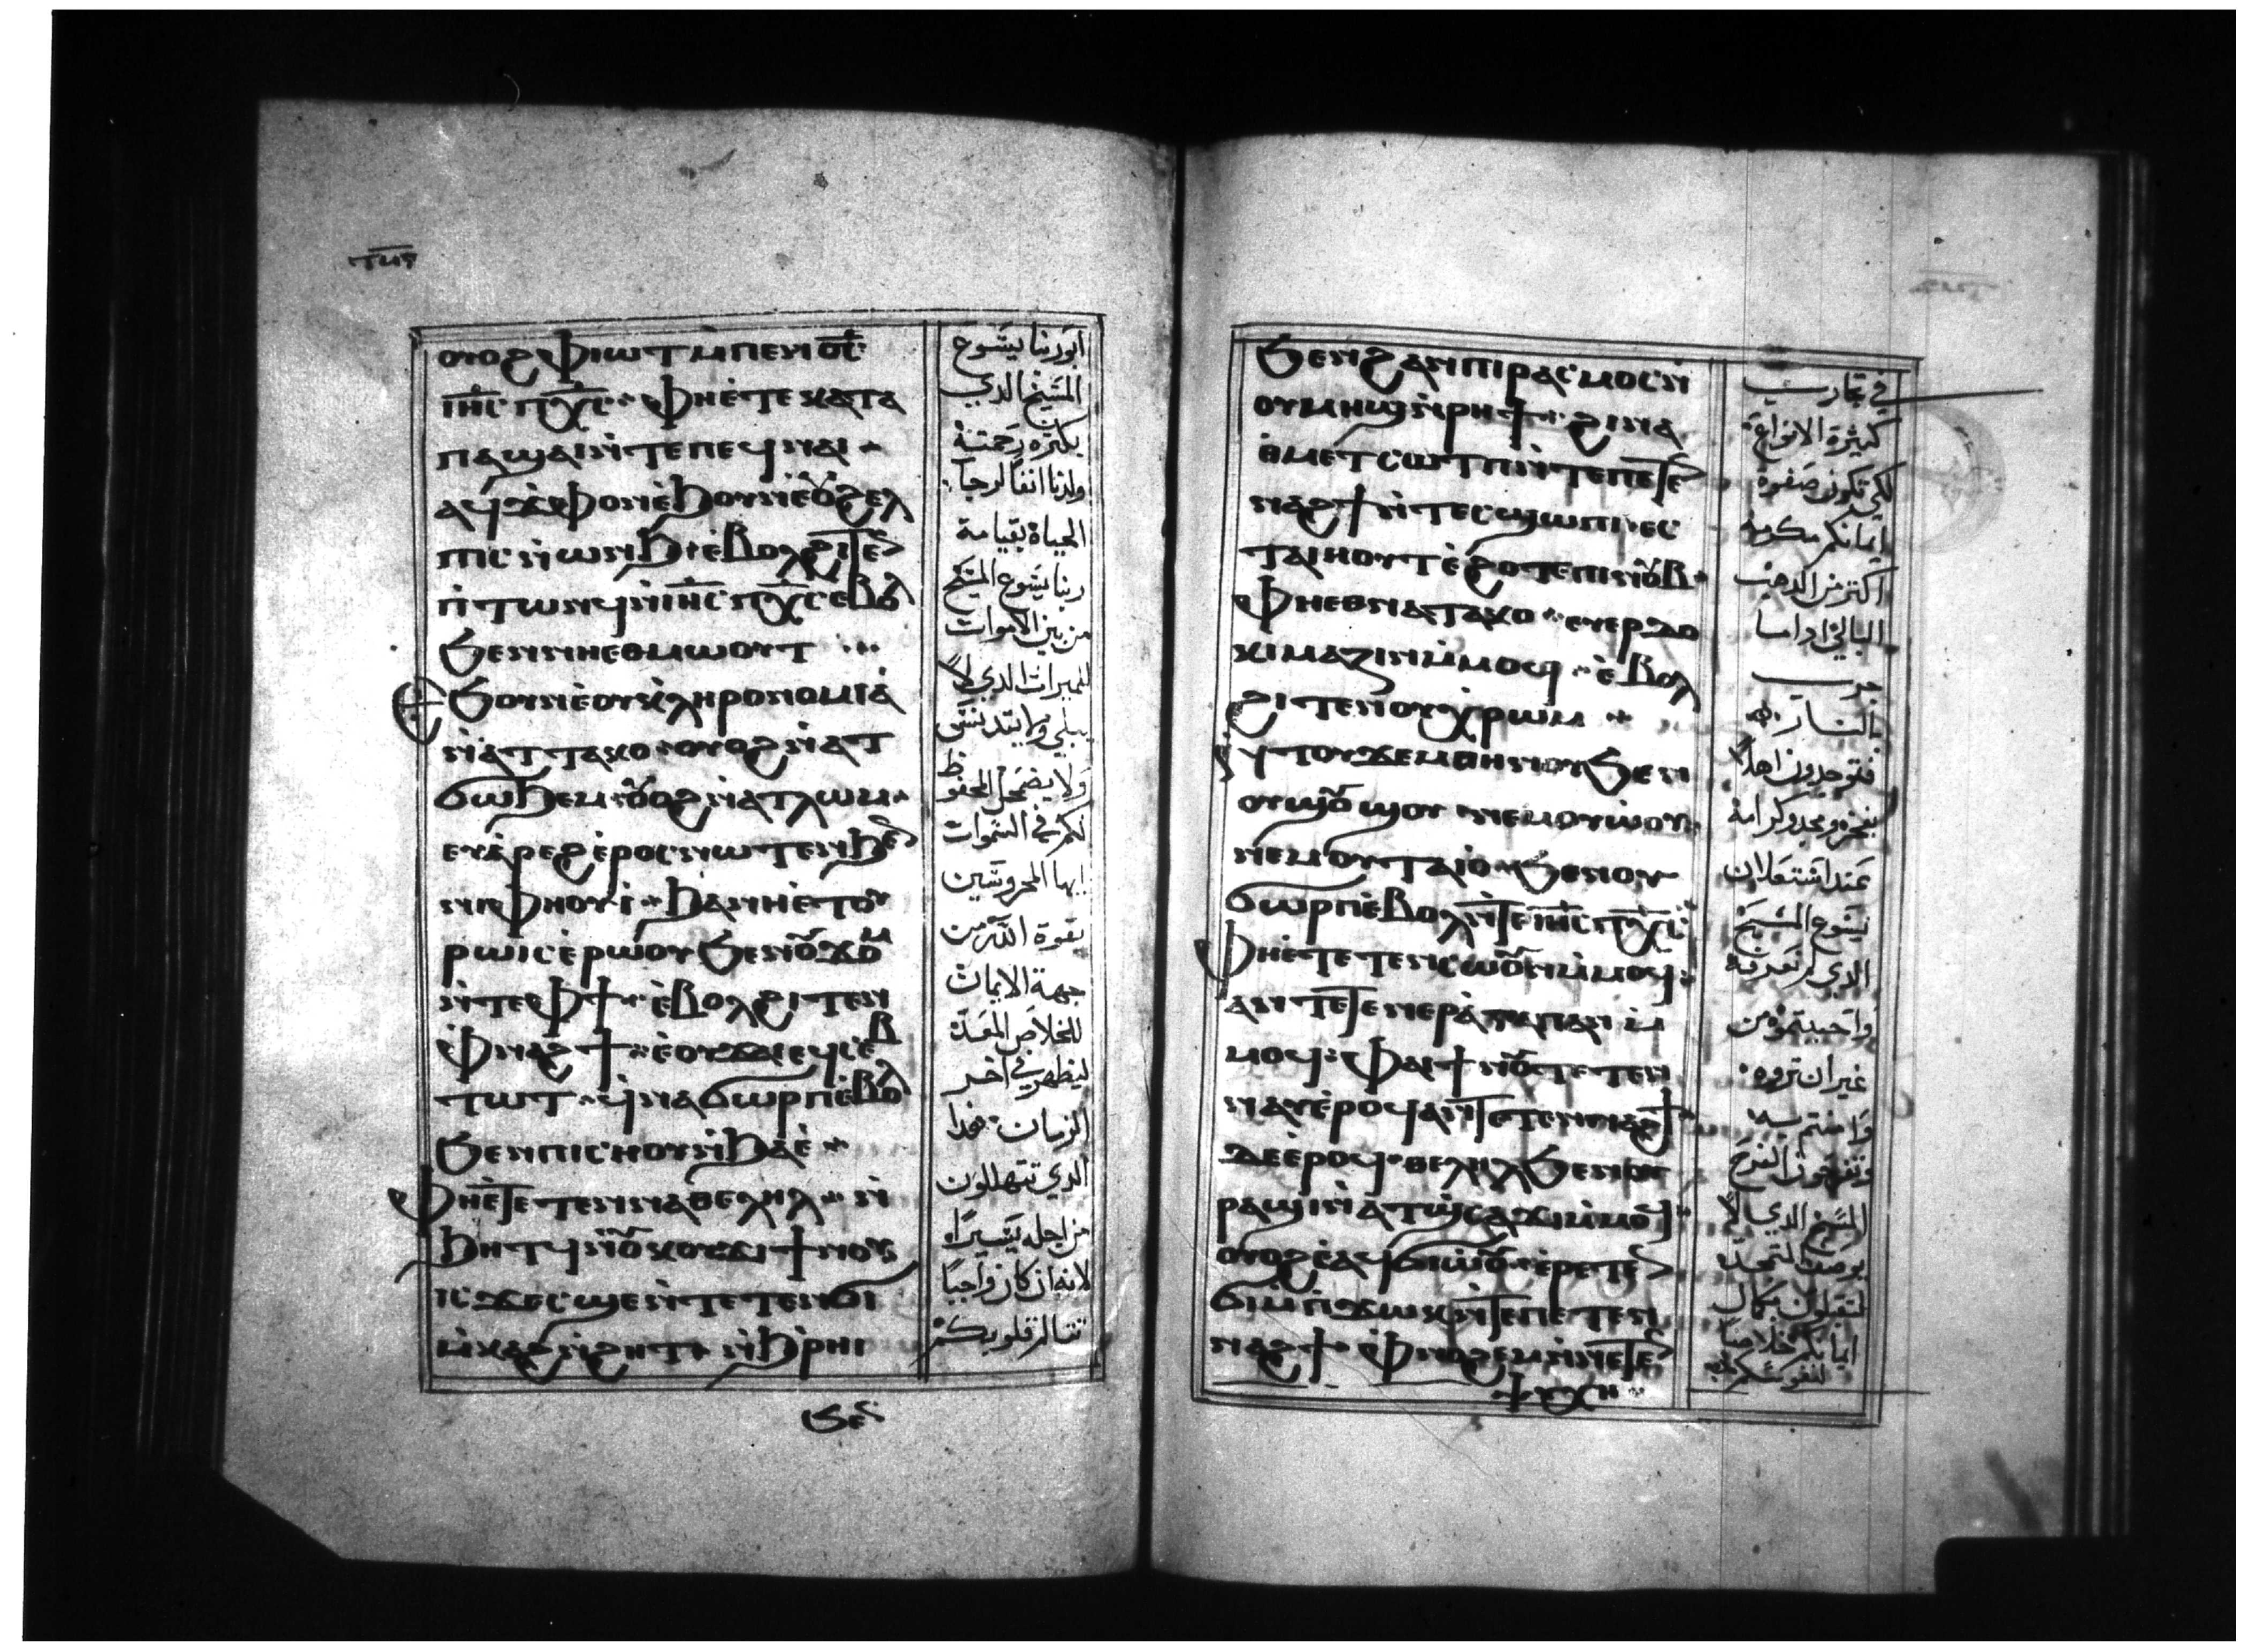 ⲧⲙⲅ
ⲟⲩⲟϩ ⲫⲓⲱⲧ ⲙ̀ⲡⲉⲛⲟ̅ⲥ̅
ⲓⲏ̅ⲥ ⲡⲭ̅ⲥ ⲫⲏⲉ̀ⲧⲉ ⲕⲁⲧⲁ
ⲡⲁϣⲁⲓ ⲛ̀ⲧⲉ ⲡⲉϥⲛⲁⲓ
ⲁϥϫ̀ⲫⲟⲛ ⲉ̀ϧⲟⲩⲛ ⲉⲟⲩϩⲉⲗ
ⲡⲓⲥ ⲛ̀ⲱⲛϧ ⲉ̀ⲃⲟⲗϩⲓⲧⲉⲛ
ⲡ̀ⲧⲱⲛϥ ⲛ̀ⲓⲏ̅ⲥ ⲡⲭ̅ⲥ ⲉⲃⲟⲗ
ϧⲉⲛ ⲛⲏⲉⲑⲙⲱⲟⲩⲧ
ϧⲟⲩⲛ ⲉ̀ⲟⲩⲕ̀ⲗⲏⲣⲟⲛⲟⲙⲓⲁ̀
ⲛ̀ⲁⲧⲧⲁⲕⲟ ⲟⲩⲟϩ ⲛ̀ⲁⲧ
ϭⲱϧⲉⲙ ⲟⲩⲟϩ ⲛⲁⲧⲗⲱⲙ
ⲉⲩⲁ̀ⲣⲉϩ ⲉ̀ⲣⲟⲥ ⲛⲱⲧⲉⲛ ϧⲉⲛ
ⲛⲓⲫⲏⲟⲩⲓ̀ ϧⲁ ⲛⲏⲉ̀ⲧⲟⲩ
ⲣⲱⲓⲥ ⲉ̀ⲣⲱⲟⲩ ϧⲉⲛ ⲟⲩϫⲟⲙ
ⲛ̀ⲧⲉ ⲫϯ ⲉ̀ⲃⲟⲗϩⲓⲧⲉⲛ
ⲫ̀ⲛⲁϩϯ ⲉ̀ⲟⲩϫⲁⲓ ⲉϥⲥⲉⲃ
ⲧⲱⲧ ϥ̀ⲛⲁϭⲱⲣⲡ ⲉ̀ⲃⲟⲗ
ϧⲉⲛ ⲡⲓⲥⲏⲟⲩ ⲛ̀ϧⲁⲉ̀
ⲫⲏⲉ̀ⲧⲉⲧⲉⲛⲛⲁⲑⲉⲗⲏⲗ ⲛ̀
ϧⲏⲧϥ ⲛ̀ⲟⲩⲕⲟⲩϫⲓ ϯⲛⲟⲩ
ⲓⲥϫⲉ ⲥϣⲉ ⲛ̀ⲧⲉⲧⲉⲛϭⲓ
ⲙ̀ⲕⲁϩ ⲛ̀ϩⲏⲧ ⲛ̀ϧⲣⲏⲓ
ϧⲉⲛ
ابو ربنا يسوع
المسيح الدي
بكتره رحمته
ولدنا اننا لرجا
الحياة بقيامة
ربنا يسوع المسيح
من بين الاموات
للميرات الدي لا
يبلي ولا يتدنس
ولا يضمحل المحفوظ
لكم في السموات
ايها المحروسين
بقوة الله من
جهة الايمان
للخلاص المعد
ليظهر في اخر
الزمان هدا
الدي تتهللون
من اجله يسيرا
لانه ان كان واجبا
تتالم قلوبكم
ϧⲉⲛ ϩⲁⲛⲡⲓⲣⲁⲥⲙⲟⲥ ⲛ̀
ⲟⲩⲙⲏϣ ⲛ̀ⲣⲏϯ ϩⲓⲛⲁ
ⲑ̀ⲙⲉⲧⲥⲱⲧⲡ ⲛ̀ⲧⲉ ⲡⲉⲧⲉⲛ
ⲛⲁϩϯ ⲛ̀ⲧⲉⲥϣⲱⲡⲓ ⲉⲥ
ⲧⲁⲓⲏⲟⲩⲧ ⲉ̀ϩⲟⲧⲉ ⲡⲓⲛⲟⲩⲃ
ⲫⲏⲉⲑⲛⲁⲧⲁⲕⲟ ⲉⲩⲉⲣⲇⲟ
ⲕⲓⲙⲁⲍⲓⲛ ⲙ̀ⲙⲟϥ ⲉ̀ⲃⲟⲗ
ϩⲓⲧⲉⲛ ⲟⲩⲭ̀ⲣⲱⲙ
ⲛ̀ⲧⲟⲩϫⲉⲙ ⲑⲏⲛⲟⲩ ϧⲉⲛ
ⲟⲩϣⲟⲩϣⲟⲩ ⲛⲉⲙ ⲟⲩⲱ̀ⲟⲩ
ⲛⲉⲙ ⲟⲩⲧⲁⲓⲟ̀ ϧⲉⲛ ⲟⲩ
ϭⲱⲣⲡ ⲉ̀ⲃⲟⲗ ⲛ̀ⲧⲉ ⲓⲏ̅ⲥ ⲡⲭ̅ⲥ
ⲫⲏⲉ̀ⲧⲉ ⲧⲉⲧⲉⲛⲥⲱⲟⲩⲛ ⲙ̀ⲙⲟϥ
ⲁⲛ ⲧⲉⲧⲉⲛⲉⲣⲁ̀ⲅⲁⲡⲁⲛ ⲙ̀
ⲙⲟϥ ⲫⲁⲓ ϯⲛⲟⲩ ⲧⲉⲧⲉⲛ
ⲛⲁⲩ ⲉ̀ⲣⲟϥ ⲁⲛ ⲧⲉⲧⲉⲛⲛⲁϩϯ
ⲇⲉ ⲉ̀ⲣⲟϥ ⲑⲉⲗⲏⲗ ϧⲉⲛ ⲟⲩ
ⲣⲁϣⲓ ⲛ̀ⲁⲧϣ̀ⲥⲁϫⲓ ⲙ̀ⲙⲟϥ
ⲟⲩⲟϩ ⲉ̀ⲁϥϭⲓⲱ̀ⲟⲩ ⲉ̀ⲣⲉⲧⲉⲛ
ϭⲓ ⲙ̀ⲡ̀ϫⲱⲕ ⲛ̀ⲧⲉ ⲡⲉⲧⲉⲛ
ⲛⲁϩϯ ⲫ̀ⲛⲟϩⲉⲙ ⲛ̀ⲛⲉⲧⲉⲛ
ⲯⲩⲭⲏ
في تجاريب
كثيرة الانواع
لكي تكون صفوة
ايمانكم مكرمة
اكتر من الدهب
البالي ادا ما
جرب
بالنار
فتوجدون اهلا
بفخر ومجد وكرامة
عند استعلان
يسوع المسيح
الدي لم تعرفه
واحببتموه من
غير ان تروه
وامنتم به
وتفرحون الفرح
المسبح الدي لا
يوصف لتمجد
لتقبلون بكمال
ايمانكم خلاصا
لنفوسكم